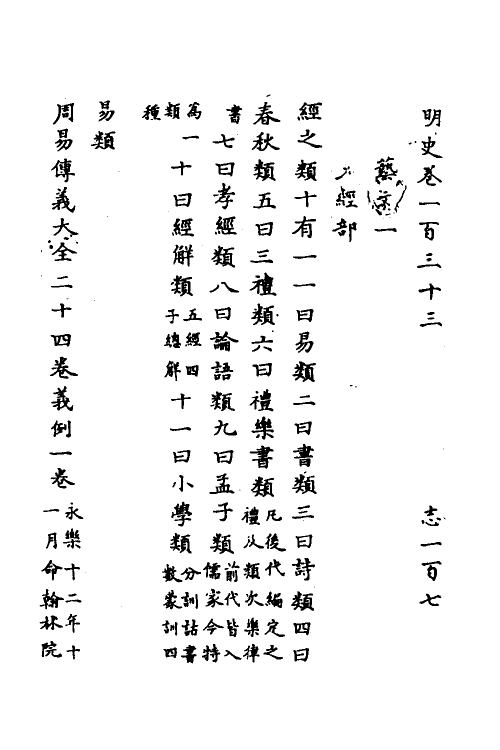 明史卷一百三十三　志一百七
藝文一
經部
經之類十有一一曰易類二曰書類三曰詩類四曰
春秋類五曰三禮類六曰禮樂書類凡後代編定之禮從類次樂律
書七曰孝經類八曰論語類九曰孟子類前代皆入儒家今特
為一類十曰經解類五經四子總解十一曰小學類分訓詁書數蒙訓四
種
易類
周易傳義大全二十四卷義例一卷永樂十二年十一月命翰林院